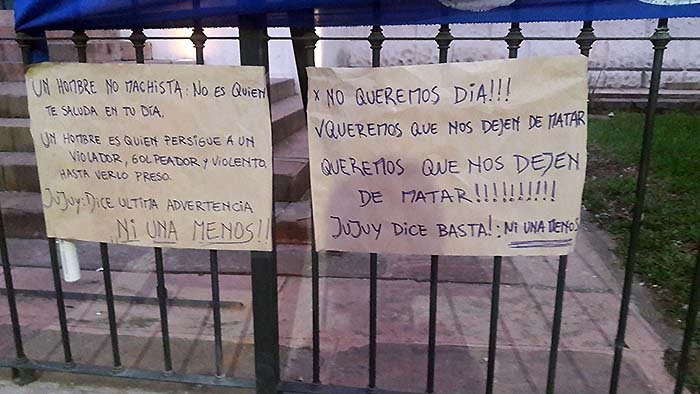 UN HOMBRE NO MACHISTA: NO ES QUIEN
TE SALUDA EN TU DÍA.
UN HOMBRE ES QUIEN PERSIGUE A UN
VIOLADOR, GOLPEADOR Y VIOLENTO,
HASTA VERLO PRESO.
JUJUY: DICE ULTIMA ADVERTENCIA
NI UNA MENOS!!
x NO QUEREMOS DIA!!!
√ QUEREMOS QUE NOS DEJEN DE MATAR
QUEREMOS QUE NOS DEJEN
DE MATAR!!!!!!!!!!
JUJUY DICE BASTA!: NI UNA MENOS